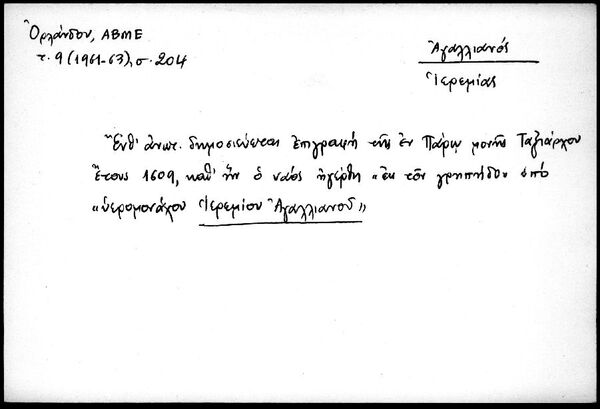 Ὀρλάνδου, ΑΒΜΕ
τ. 9 (1961-63), σ. 204
Ἀγαλλιανός
Ἱερεμίας
Ἔνθ' ἀνωτ. δημοσιεύεται ἐπιγραφή τῆς ἐν Πάρῳ μονῆς Ταξιάρχου
ἔτους 1609, καθ' ἥν ὁ ναός ἠγέρθη «ἐκ τόν γρηπήδον» ὑπό
«ἱερομονάχου Ἱερεμίου Ἀγαλλιανοῦ»